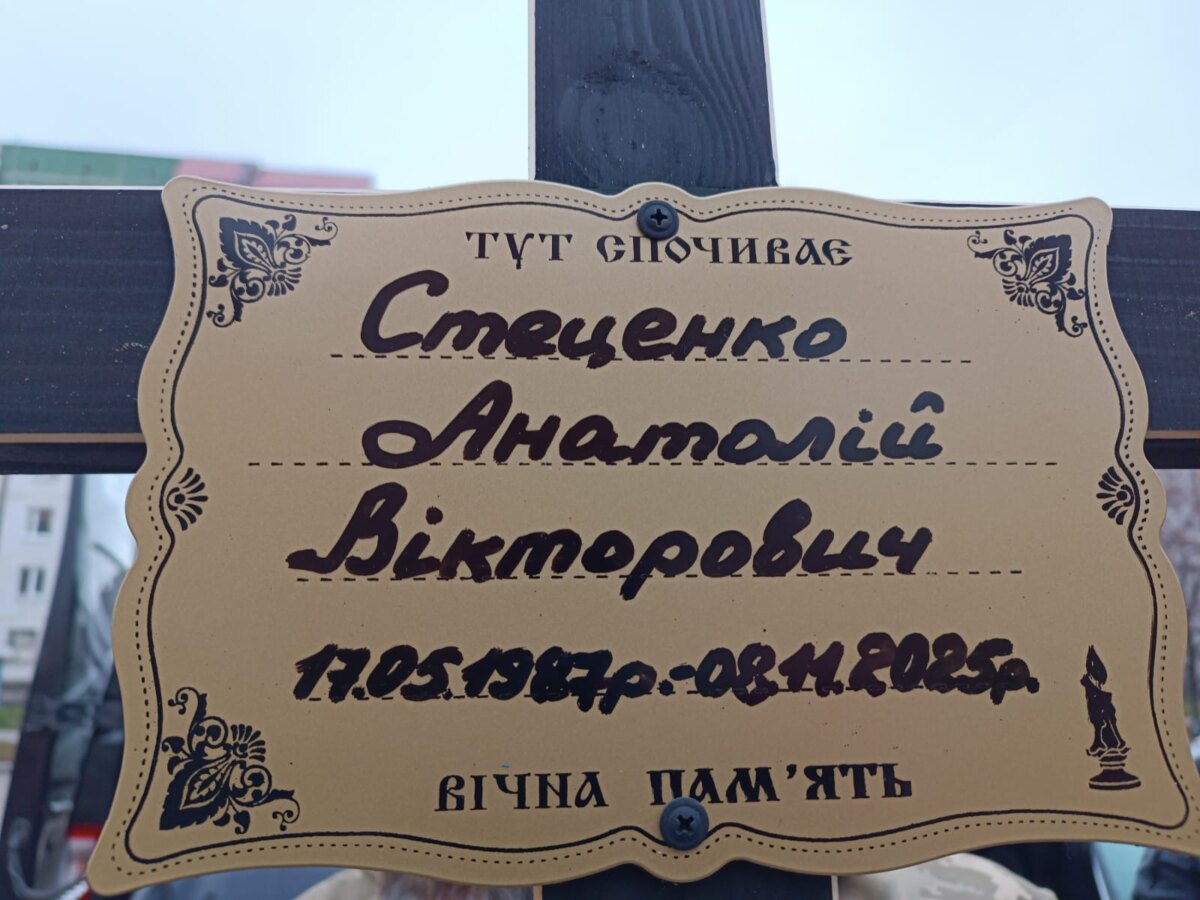 ТУТ СПОЧИВАЄ
Стеценко
Анатолій
Вікторович
17.05.1987р.-08.11.2025р.
ВІЧНА ПАМ’ЯТЬ